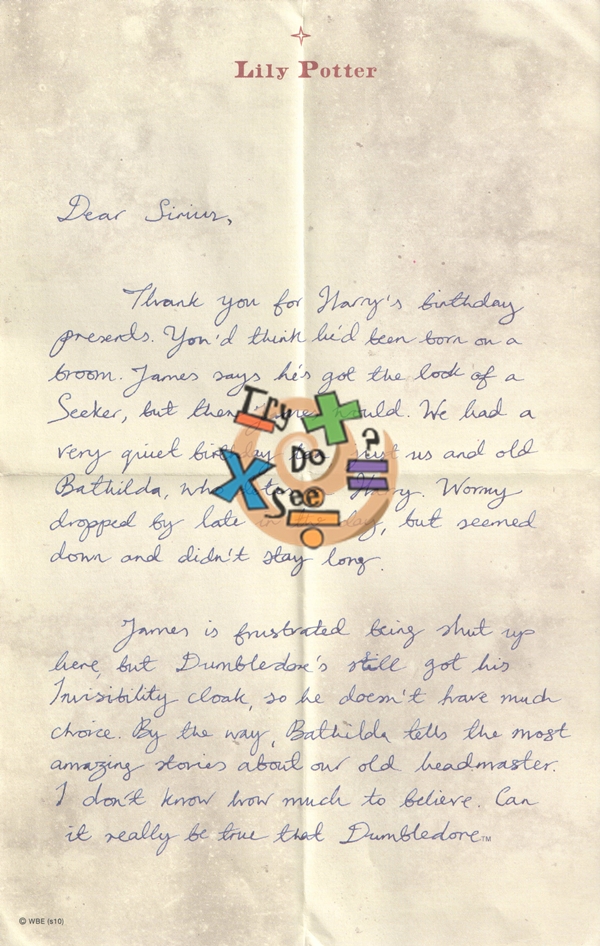 Lily Potter
Dear Sirius,
Thank you for Harry's birthday
presents. You'd think he'd been born on a
broom. James says he's got the look of a
Seeker, but then James would. We had a
very quiet birthday just us and old
Bathilda, who Harry. Wormy
dropped by late in the day, but seemed
down and didn't stay long.
James is frustrated being shut up
here, but Dumbledore's still got his
Invisibility cloak, so he doesn't have much
choice. By the way, Bathilda tells the most
amazing stories about our old headmaster.
I don't know how much to believe. Can
it really be true that Dumbledore™
Try
Do
See
?
© WBE (s10)